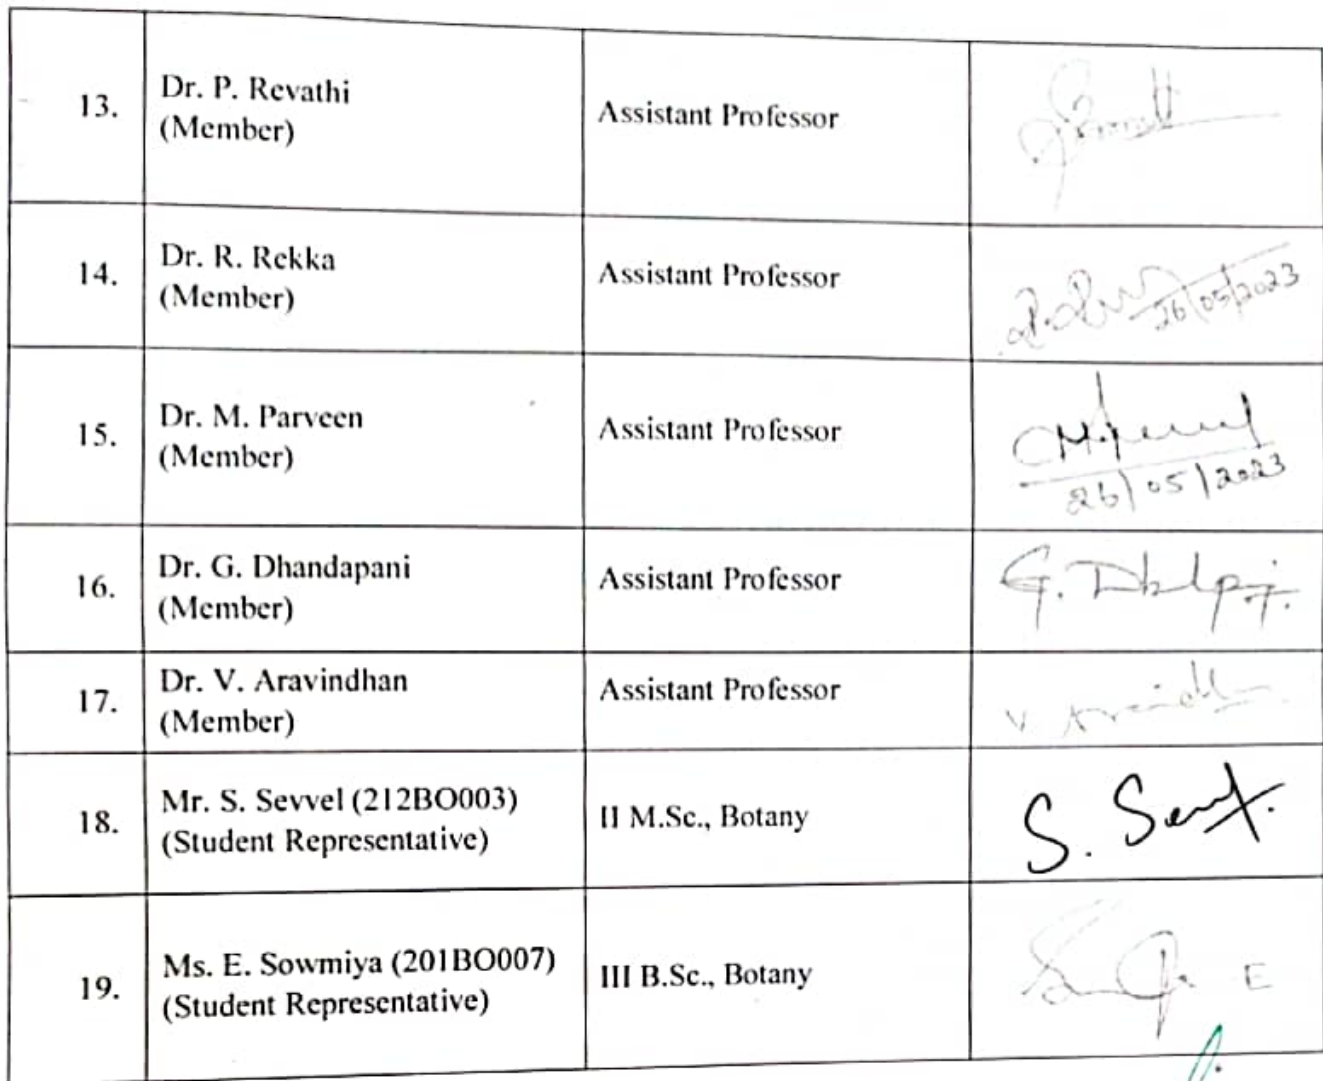 13.
Dr. P. Revathi
(Member)
Assistant Professor
14.
Dr. R. Rekka
(Member)
Assistant Professor
26/05/2023
15.
Dr. M. Parveen
(Member)
Assistant Professor
26/05/2023
16.
Dr. G. Dhandapani
(Member)
Assistant Professor
17.
Dr. V. Aravindhan
(Member)
Assistant Professor
18.
Mr. S. Sevvel (212BO003)
(Student Representative)
II M.Sc., Botany
19.
Ms. E. Sowmiya (201BO007)
(Student Representative)
III B.Sc., Botany